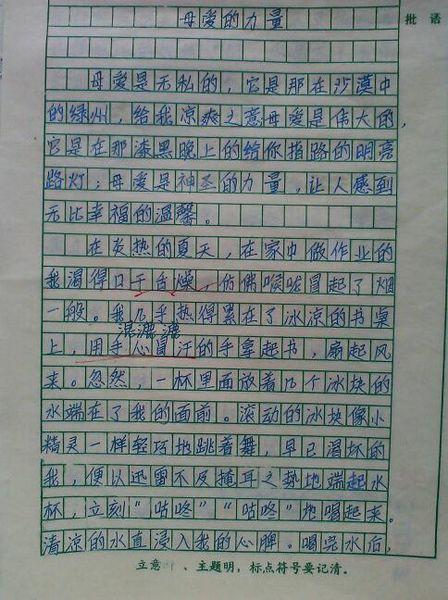 母爱的力量
批 语
母爱是无私的，它是那在沙漠中
的绿州，给我凉爽之意母爱是伟大的，
它是在那漆黑晚上的给你指路的明亮
路灯；母爱是神圣的力量，让人感到
无比幸福的温馨。
在炎热的夏天，在家中做作业的
我渴得口干舌燥，仿佛喉咙冒起了烟
一般。我几乎热得累在了冰凉的书桌
湿漉漉
上，用手心冒汗的手拿起书，扇起风
来。忽然，一杯里面放着几个冰块的
水端在了我的面前。滚动的冰块像小
精灵一样轻巧地跳着舞，早已渴坏的
我，便以迅雷不及掩耳之势地端起水
杯，立刻“咕咚”“咕咚”地喝起来。
清凉的水直浸入我的心脾。喝完水后，
立意 、主题明，标点符号要记清。